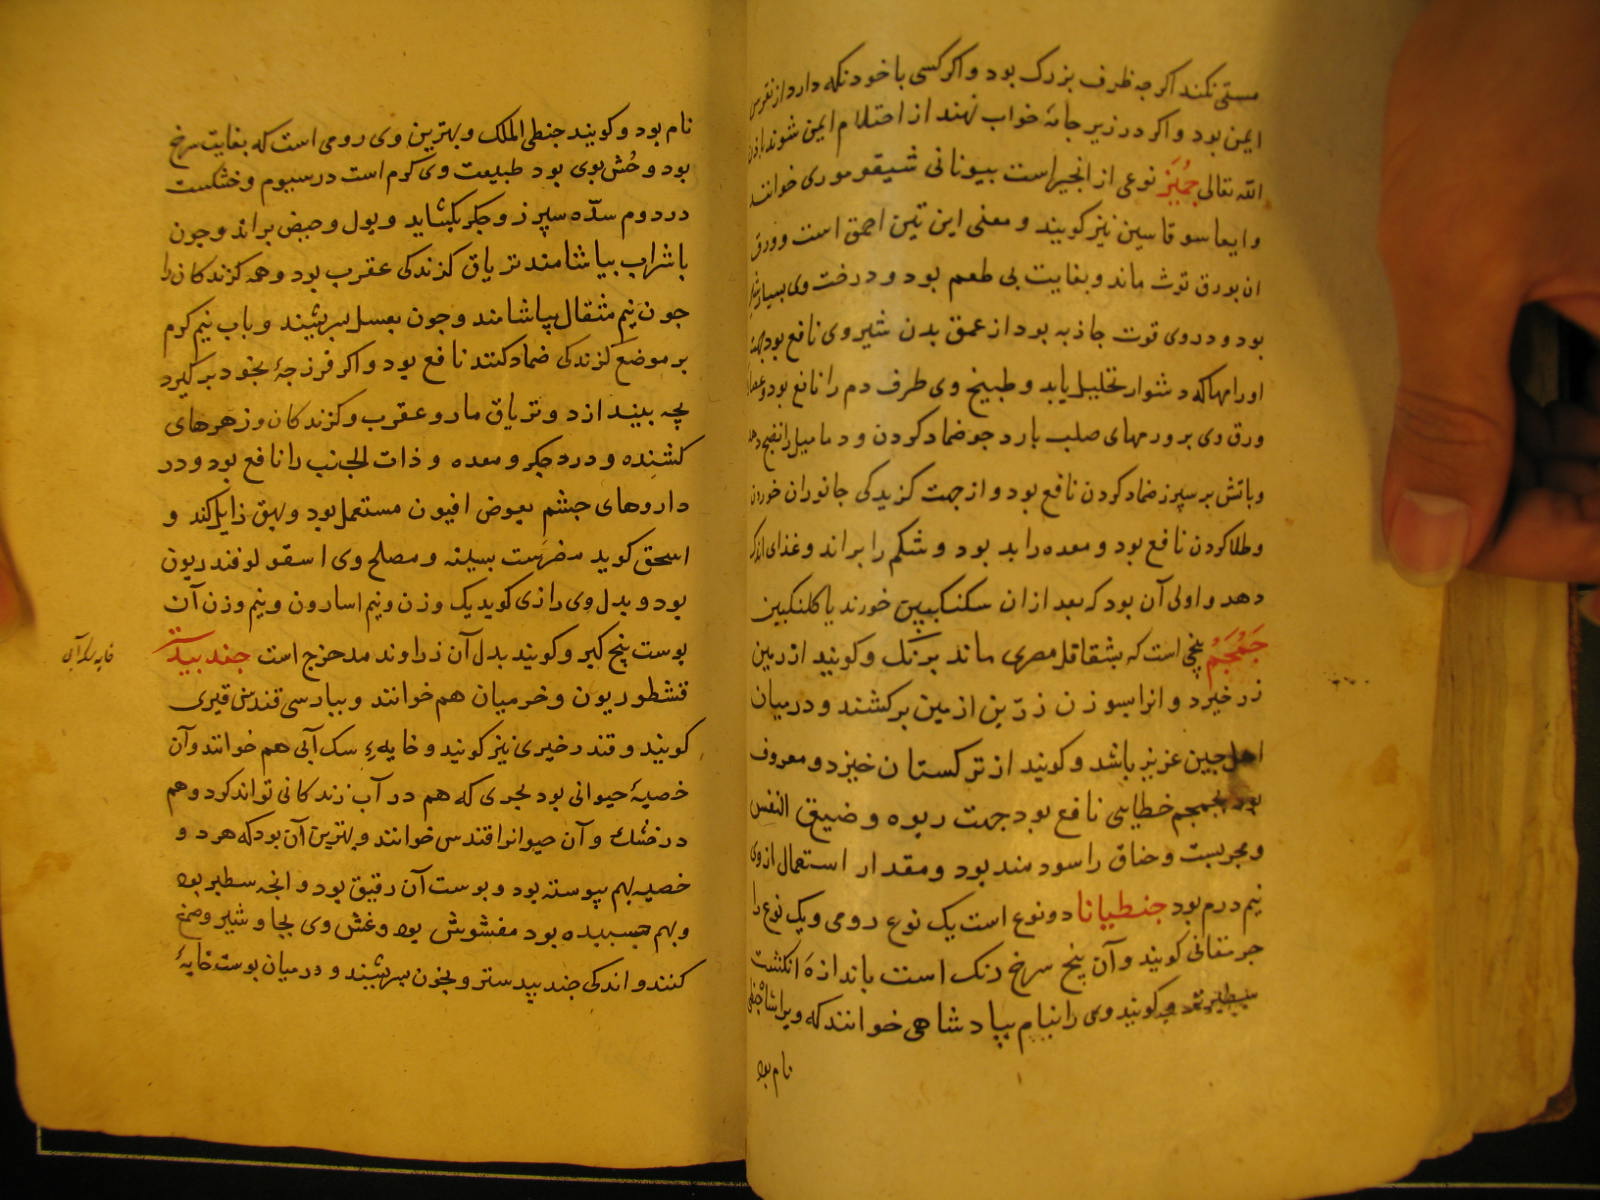 مستی نکند اکرجه ظرف بزرک بود و اکر کسی با خود نکه دارد از نقرس
ایمن بود و اکر در زیر جامهٔ خواب نهند از احتلام ایمن شوند باذن
الله تعالی جمیز نوعی از انجیر است بیونانی شیقوموری خوانند
و ایعا سوقاسین نیز کویند و معنی این تین احمق است و ورق
ان بورق توث ماند و بغایت بی طعم بود و درخت وی بسیار شیر
بود و در وی قوت جاذبه بود از عمق بدن شیر وی نافع بود جهت
اورامها که دشوار تحلیل یابد و طبیخ وی ظرف دم را نافع بود و عصارهٔ
ورق وی بر ورمهای صلب بارد جو ضماد کردن و دمامیل را نضج دهد
و باتش بر سپرز ضماد کردن نافع بود و از جهت کزیدکی جانوران خوردن
و طلا کردن نافع بود و معده را بد بود و شکم را براند و غذای اندک
دهد و اولی آن بود که بعد از ان سکنکبین خورند یا کلنکبین
جمجم بیخی است که بشقاقل مصری ماند برنک و کویند از زمین
زر خیزد و انرا بسوزن زرین از زمین برکشند و در میان
اهل جین عزیز باشد و کویند از ترکستان خیزد و معروف
بود بجمجم خطایی نافع بود جهت ربوه و ضیق النفس
و مجربست و خناق را سودمند بود و مقدار استعمال از وی
نیم درم بود جنطیانا دو نوع است یک نوع رومی و یک نوع را
جرمقانی کویند و آن بیخ سرخ رنک است باندازهٔ انکشت
سطبرتر و کویند وی را بنام پپادشاهی خوانند که ویرا شاه جنطی
نام بود
نام بود و کویند جنطی الملک و بهترین وی رومی است که بغایت سرخ
بود و خش بوی بود طبیعت وی کرم است در سیوم و خشکست
در دوم سدّه سپرز و جکر بکشاید و بول و حیض براند و جون
با شراب بیاشامند تریاق کزندکی عقرب بود و همه کزندکان را
جون نیم مثقال بپاشامند و جون بعسل بسرشند و باب نیم کرم
بر موضع کزندکی ضماد کنند نافع بود و اکر فرزجهٔ بخود برکیرد
بچه بیندازد و تریاق مار و عقرب و کزندکان و زهرهای
کشنده و درد جکر و معده و ذات الجنب را نافع بود و در
داروهای جشم بعوض افیون مستعمل بود و بهق زایل کند و
اسحق کوید مضرست بسینه و مصلح وی اسقولوفندریون
بود و بدل وی رازی کوید یک وزن و نیم اسارون و نیم وزن آن
بوست بیخ کبر و کویند بدل آن زراوند مدحرج است جند بیدستر
قنشطوریون و خرمیان هم خوانند و بپارسی قندس قیری
کویند و قندر خیری نیز کویند و خایهء سک آبی هم خوانند و آن
خصیهٔ حیوانی بود بحری که هم در آب زندکانی تواند کرد و هم
در خشک و آن حیوانرا قندس خوانند و بهترین آن بود که هر دو
خصیه بهم پپوسته بود و بوست آن رقیق بود و انجه سطبر بود
و بهم جسبیده بود مغشوش بود و غش وی بجاوشیر و صمغ
کنند و اندکی جند بیدستر و بخون بسرشند و در میان بوست خایهٔ